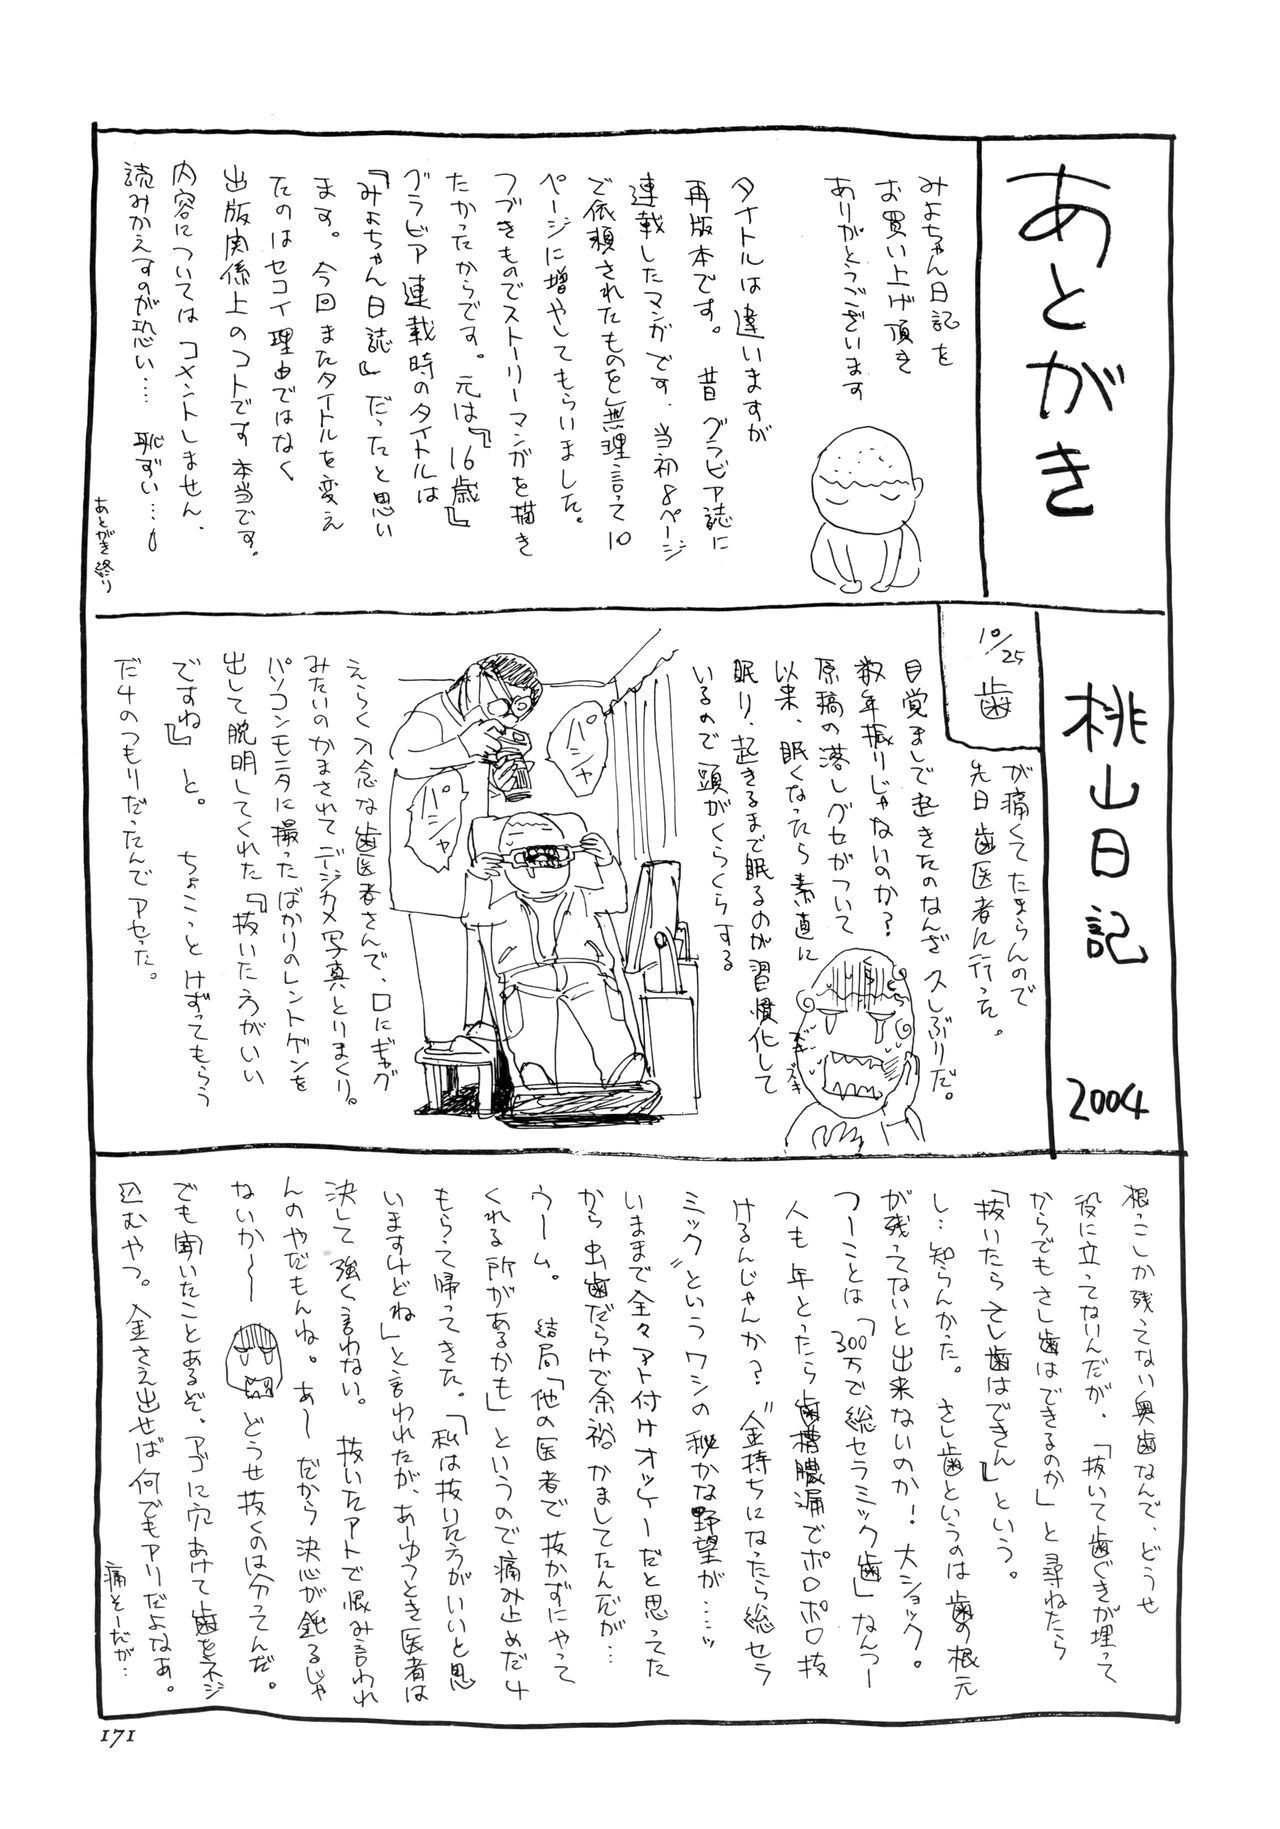 あとがき
みよちゃん日記を
お買い上げ頂き
ありがとうございます
タイトルは違いますが
再版本です。昔グラビア誌に
連載したマンガです、当初8ページ
で依頼されたものを無理言って10
ページに増やしてもらいました。
つづきものでストーリーマンガを描き
たかったからです。元は『16歳』
グラビア連載時のタイトルは
『みよちゃん日誌』だったと思い
ます。今回またタイトルを変え
たのはセコイ理由ではなく
出版関係上のコトです本当です。
内容についてはコメントしません、
読みかえすのが恐い… 恥ずい…
あとがき終り
桃山日記 2004
10/25
歯
が痛くてたまらんので
先日歯医者に行った。
目覚ましで起きたのなんざ久しぶりだ。
数年振りじゃないのか?
原稿の落しグセがついて
以来、眠くなったら素直に
眠り、起きるまで眠るのが習慣化して
いるので頭がくらくらする
ズキズキ
パシャ
パシャ
えらく入念な歯医者さんで、口にギャグ
みたいのかまされてデジカメ写真とりまくり。
パソコンモニタに撮ったばかりのレントゲンを
出して説明してくれた『抜いた方がいい
ですね』と。 ちょこっとけずってもらう
だ4のつもりだったんでアセった。
根っこしか残ってない奥歯なんで、どうせ
役に立ってないんだが、「抜いて歯ぐきが埋って
からでもさし歯はできるのか」と尋ねたら
「抜いたらさし歯はできん」という。
し…知らんかった。さし歯というのは歯の根元
が残ってないと出来ないのか！大ショック。
つーことは「300万で総セラミック歯」なんつー
人も年とったら歯槽膿漏でポロポロ抜
けるんじゃんか?〝金持ちになったら総セラ
ミック〟というワシの秘かな野望が……ッ
いままで全々アト付けオッケーだと思ってた
から虫歯だらけで余裕かましてたんだが…
ウーム。 結局「他の医者で抜かずにやって
くれる所があるかも」というので痛み止めだ4
もらって帰ってきた。「私は抜いた方がいいと思
いますけどね」と言われたが、あーゆうとき医者は
決して強く言わない。 抜いたアトで恨み言われ
んのやだもんね。あー だから決心が鈍るじゃ
ないか〜〜
どうせ抜くのは分ってんだ。
でも聞いたことあるぞ、アゴに穴あけて歯をネジ
込むやつ。金さえ出せば何でもアリだよなあ。
痛そーだが…
171